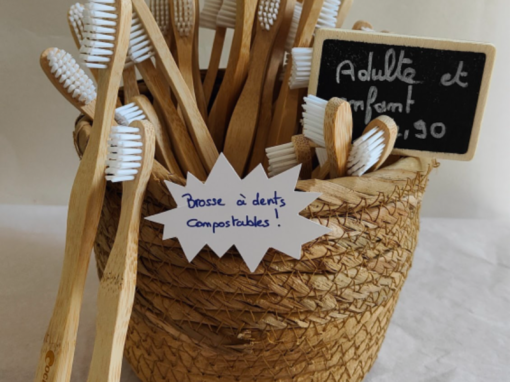 Adulte et
enfant
,90
Brosse à dents
compostables !